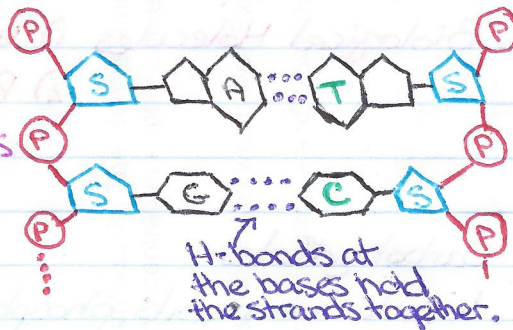 P P
S A T S
S P P
S G C S
P P
H-bonds at
the bases hold
the strands together.